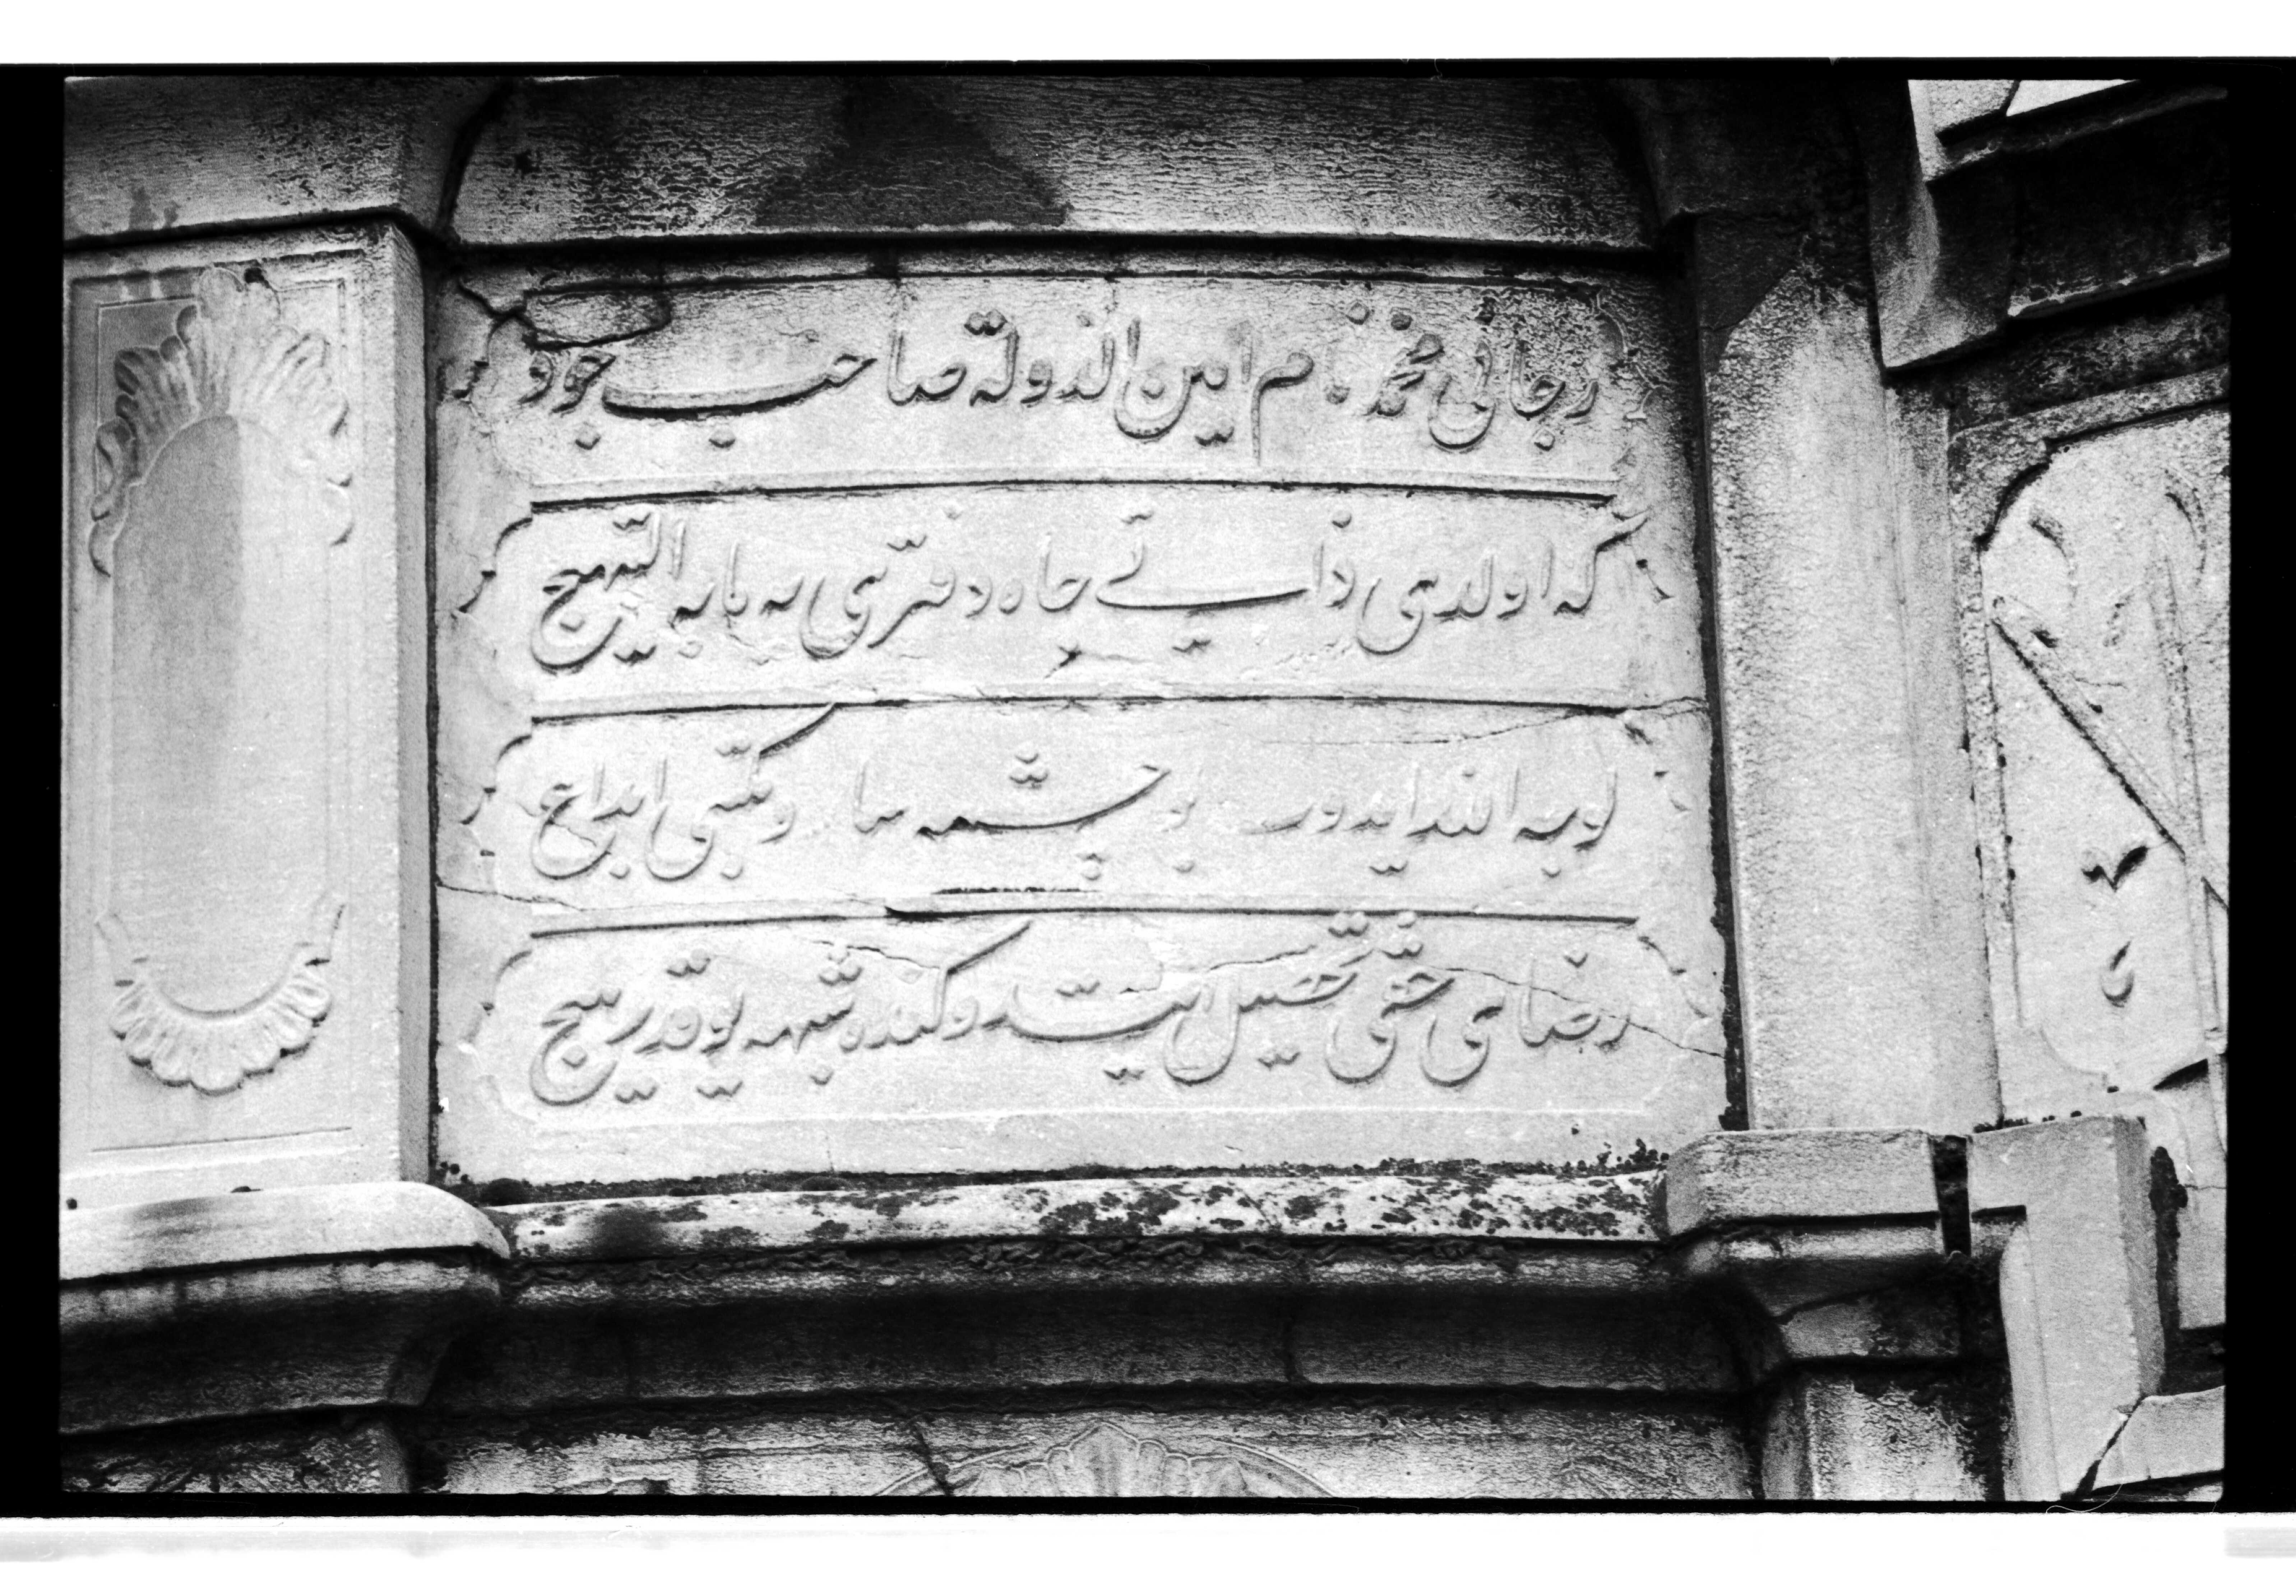 رجائی محمد نام امین الدوله صاحب جود
که اولدی ذاتی جاه دفتری یه مابه التبهیج
لوجه الله ایدوب بو چشمه سا و مکتبی ابداع
رضای حقی تحصیل ایتدوکنده شبهه یوقدر هیچ